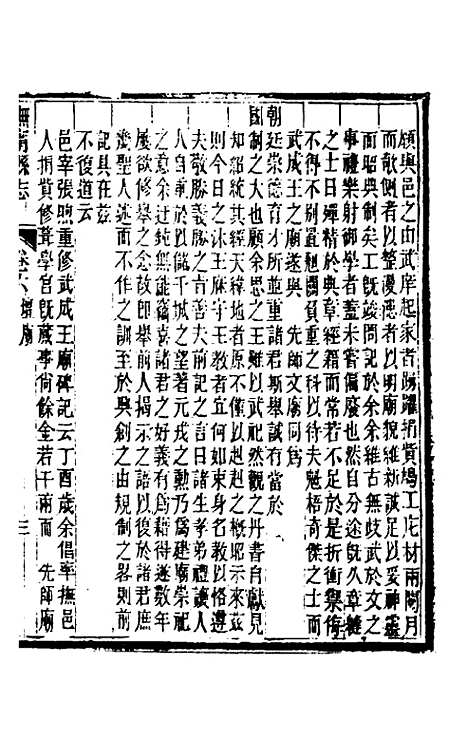 願與邑之由武庠起家者踴躍捐貲鳩工庀材兩閱月
而敝慨者以整漫漶者以明廟貌維新誠足以妥神靈
而昭典制矣工既竣問記於余余維古無歧武於文之
事禮樂射御學者蓋未嘗偏廢也然自分途既久章縫
之士日殫精於典章經籍而常不足於是折衝禦侮
不得不別置負重之科以待夫魁梧奇傑之士而
武成王之廟遂與　先師文廟同爲
朝廷崇德育才所並重諸君斯舉誠有當於
國制之大也顧余思之王雖以武祀然觀之丹書自獻見
知紹統其經天緯地者原不僅以赳赳之概昭示來茲
則今日之沐王庥守王教者宜何如束身名教以恪遵
夫敬勝義勝之旨善夫前記之言曰諸生孝弟禮讓人
人自奮於以儲干城之望著元戎之勳乃爲建廟崇祀
之意余迂鈍無能竊喜諸君之好義有爲藉得遂數年
屢欲修舉之念敬即舉前人揭示之語以復於諸君庶
幾聖人述而不作之訓至於興創之由規制之畧則前
記具在茲
不復道云
邑宰張煦重修武成王廟碑記云丁酉歲余倡率撫邑
人捐貲修葺學宮既蕆事尙餘金若干兩而　先師廟
撫甯縣志　壇廟